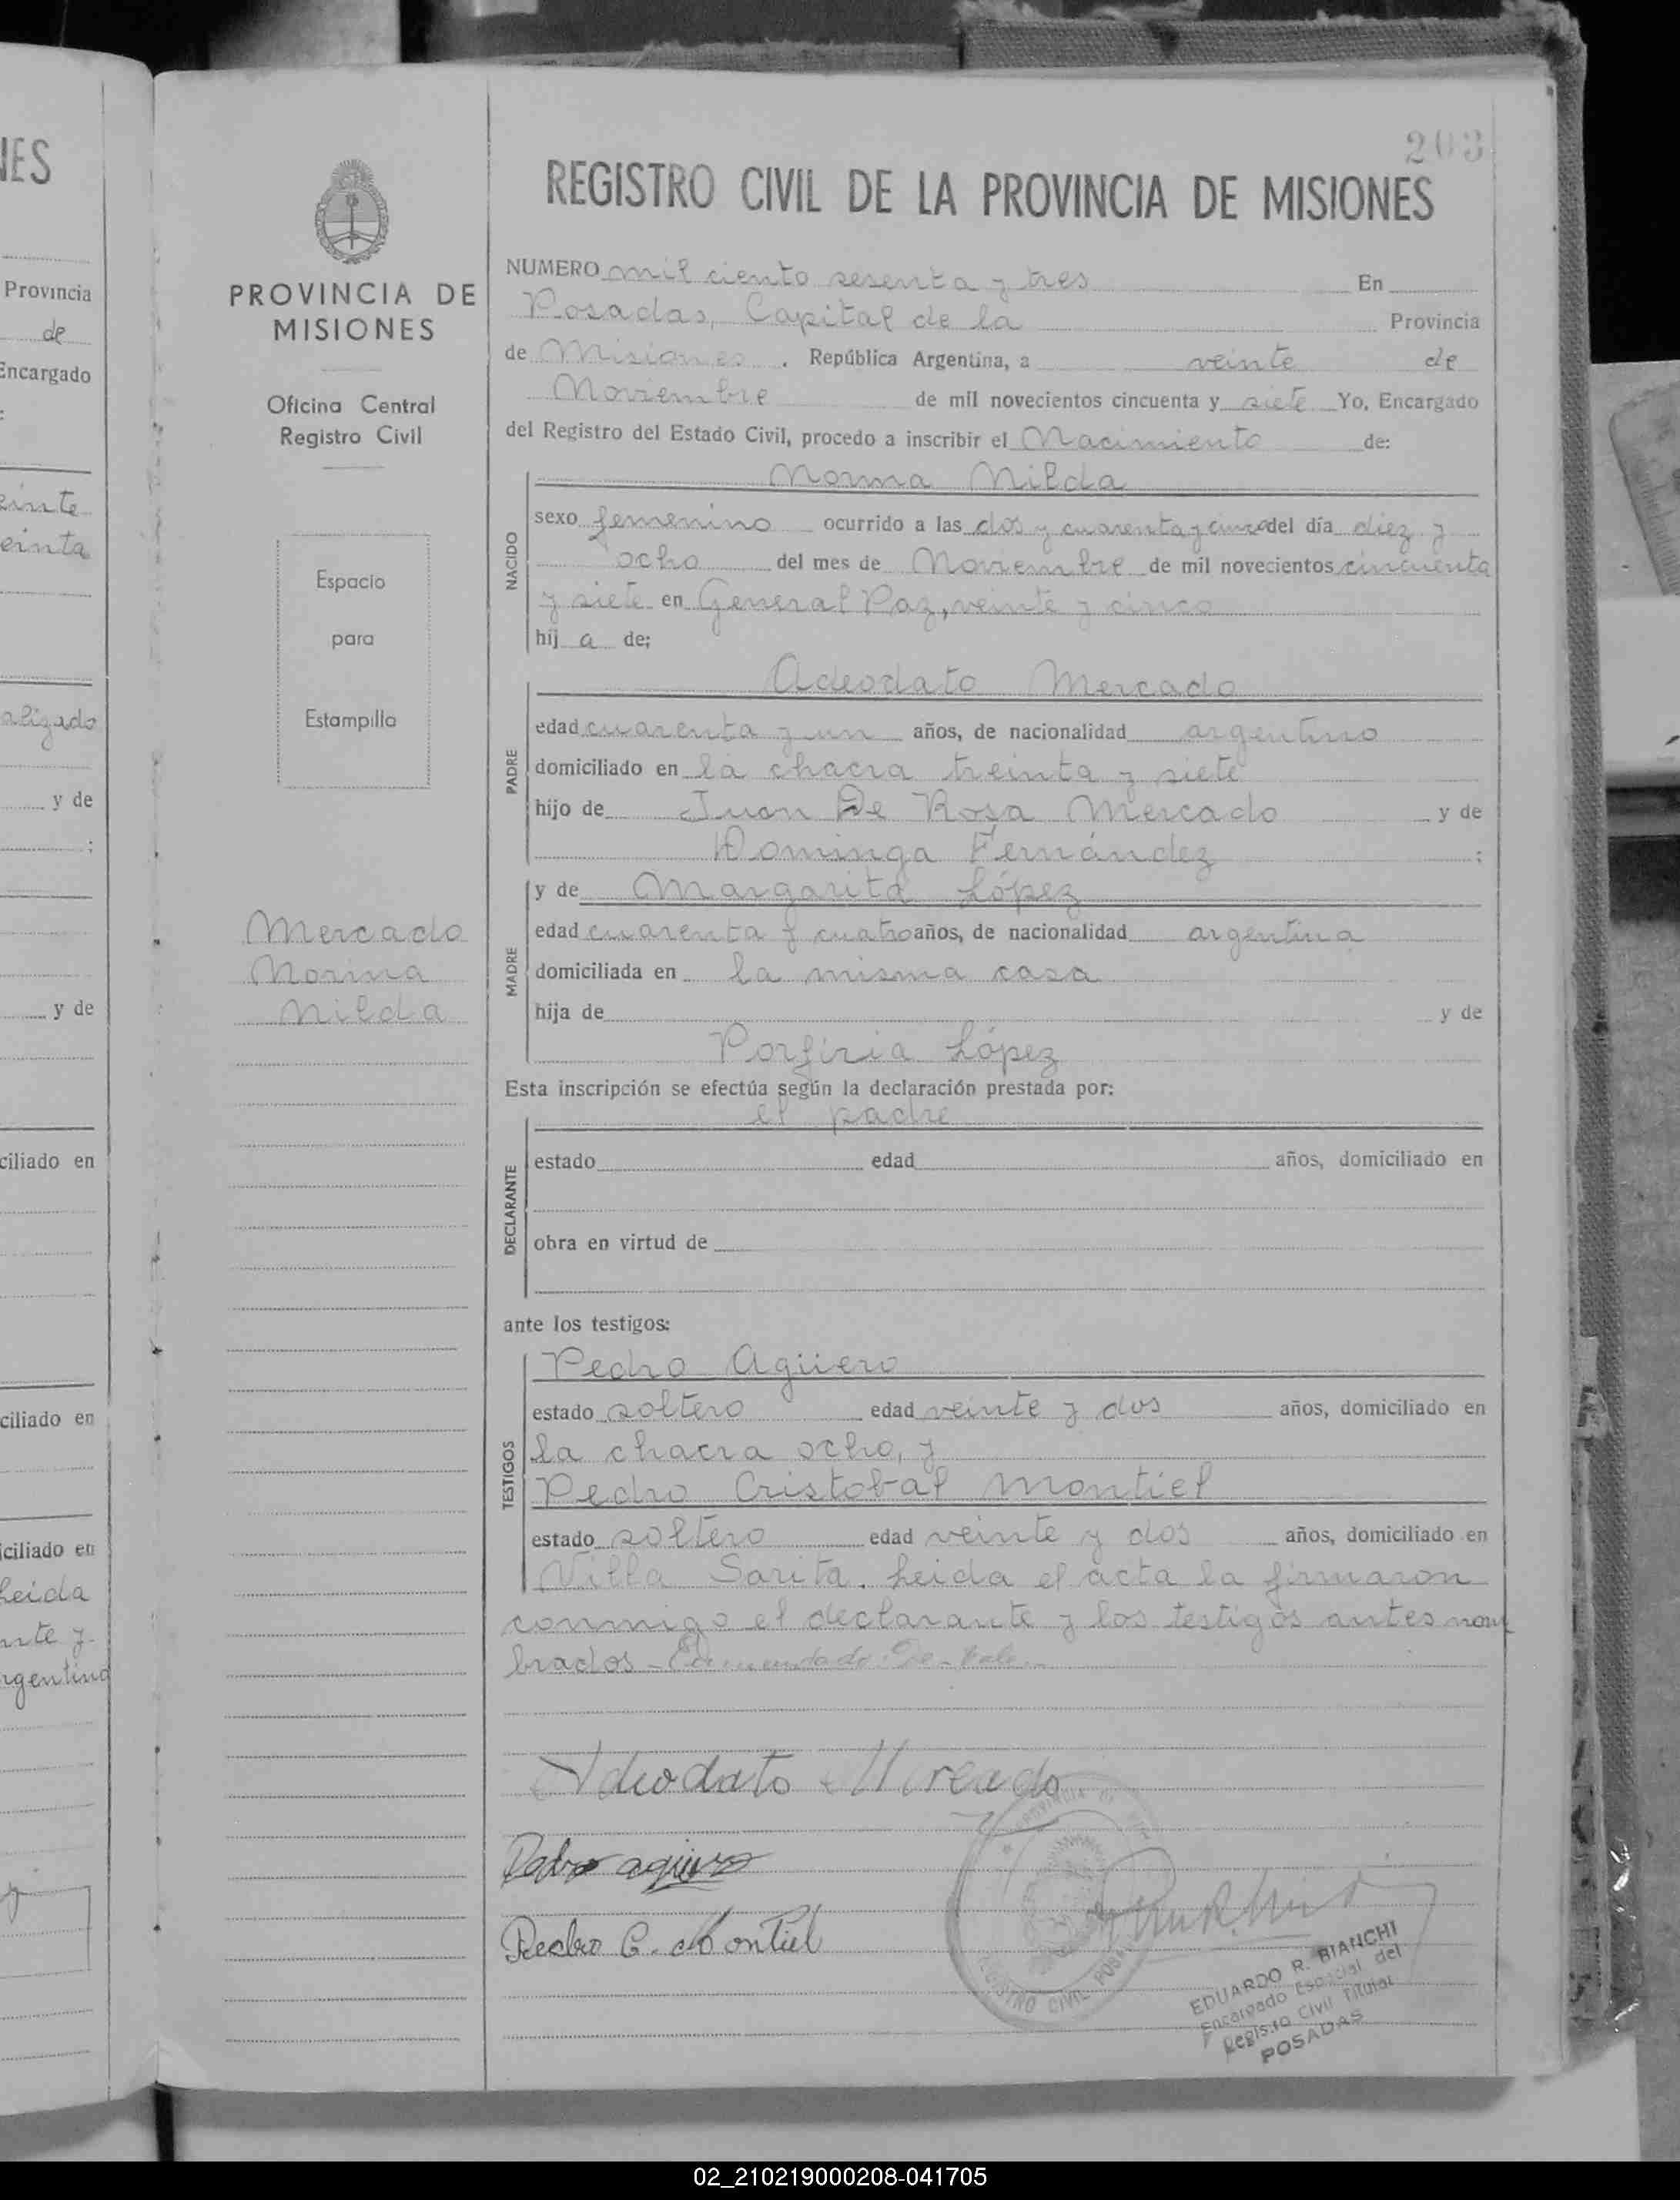 203
REGISTRO CIVIL DE LA PROVINCIA DE MISIONES
PROVINCIA DE
MISIONES
Oficina Central
Registro Civil
Espacio
para
Estampilla
Mercado
Norma
Nilda
NUMERO mil ciento sesenta y tres En
Posadas, Capital de la Provincia
de Misiones. República Argentina, a veinte de
Noviembre de mil novecientos cincuenta y siete Yo, Encargado
del Registro del Estado Civil, procedo a inscribir el Nacimiento de:
NACIDO
Norma Nilda
sexo femenino ocurrido a las dos y cuarenta y cinco del día diez y
ocho del mes de Noviembre de mil novecientos cincuenta
y siete en General Paz, veinte y cinco
hij a de;
PADRE
Adeodato Mercado
edad cuarenta y un años, de nacionalidad argentino
domiciliado en la chacra treinta y siete
hijo de Juan De Rosa Mercado y de
Dominga Fernández ;
MADRE
y de Margarita López
edad cuarenta y cuatro años, de nacionalidad argentina
domiciliada en la misma casa
hija de y de
Porfiria López
Esta inscripción se efectúa según la declaración prestada por:
el padre
DECLARANTE
estado edad años, domiciliado en
obra en virtud de
ante los testigos:
TESTIGOS
Pedro Agüero
estado soltero edad veinte y dos años, domiciliado en
la chacra ocho, y
Pedro Cristobal Montiel
estado soltero edad veinte y dos años, domiciliado en
Villa Sarita. Leida el acta la firmaron
conmigo el declarante y los testigos antes nom
brados - Enmendado: De - Vale -
Adeodato Mercado
Pedro aguero
Pedro C. Montiel
EDUARDO R. BIANCHI
Encargado Especial del
Registro Civil Titular
POSADAS
IES
Provincia
de
Encargado
einte
einta
alizado
y de
;
y de
ciliado en
ciliado en
iciliado en
Leida
nte y
rgentino
02_210219000208-041705